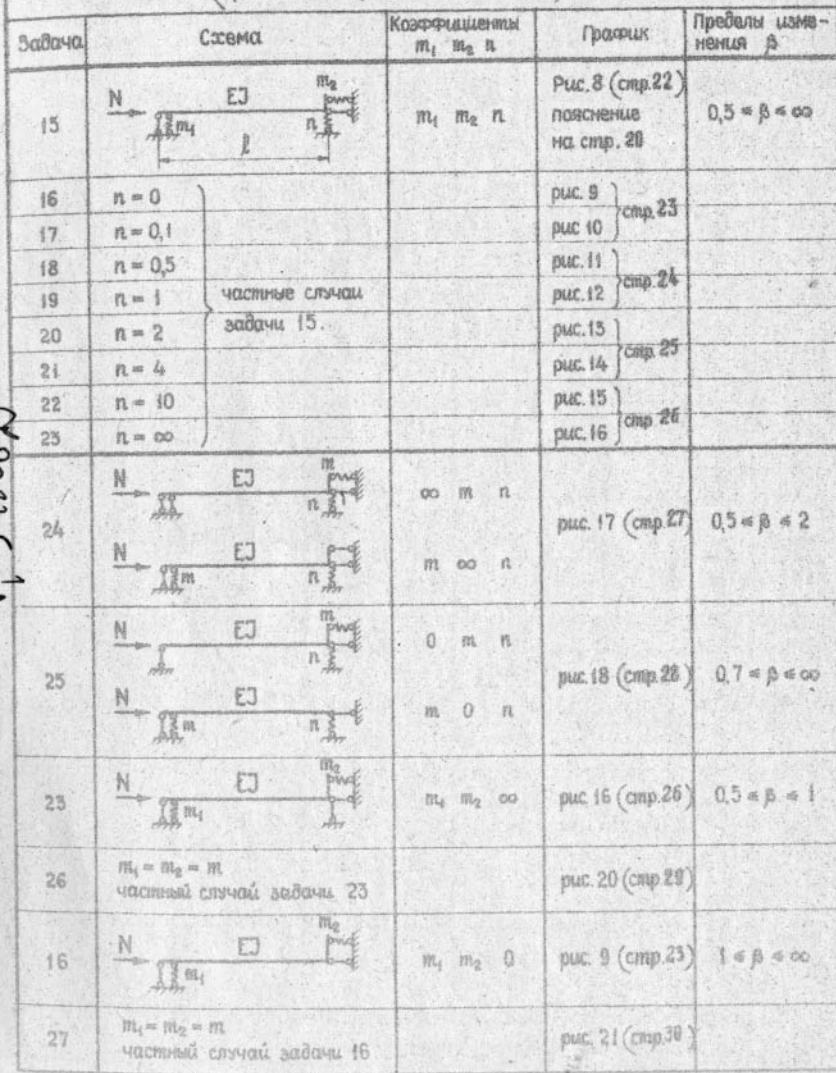 Задача Схема Коэффициенты m₁ m₂ n График Пределы изме-нения β
15 N EJ m₂ m₁ n l m₁ m₂ n Рис. 8 (стр. 22) пояснение на стр. 20 0,5 ≤ β ≤ ∞
16 n = 0 рис. 9
17 n = 0,1 рис 10 стр. 23
18 n = 0,5 рис. 11
19 n = 1 рис. 12 стр. 24
частные случаи
задачи 15.
20 n = 2 рис. 13
21 n = 4 рис. 14 стр. 25
22 n = 10 рис. 15
23 n = ∞ рис. 16 стр. 26
24 N EJ m n ∞ m n рис. 17 (стр. 27) 0,5 ≤ β ≤ 2
N EJ m n m ∞ n
25 N EJ m n 0 m n рис. 18 (стр. 28) 0,7 ≤ β ≤ ∞
N EJ m n m 0 n
23 N EJ m₂ m₁ m₁ m₂ ∞ рис 16 (стр. 26) 0,5 ≤ β ≤ 1
26 m₁ = m₂ = m
частный случай задачи 23 рис. 20 (стр. 29)
16 N EJ m₂ m₁ m₁ m₂ 0 рис. 9 (стр. 23) 1 ≤ β ≤ ∞
27 m₁ = m₂ = m
частный случай задачи 16 рис. 21 (стр. 30)